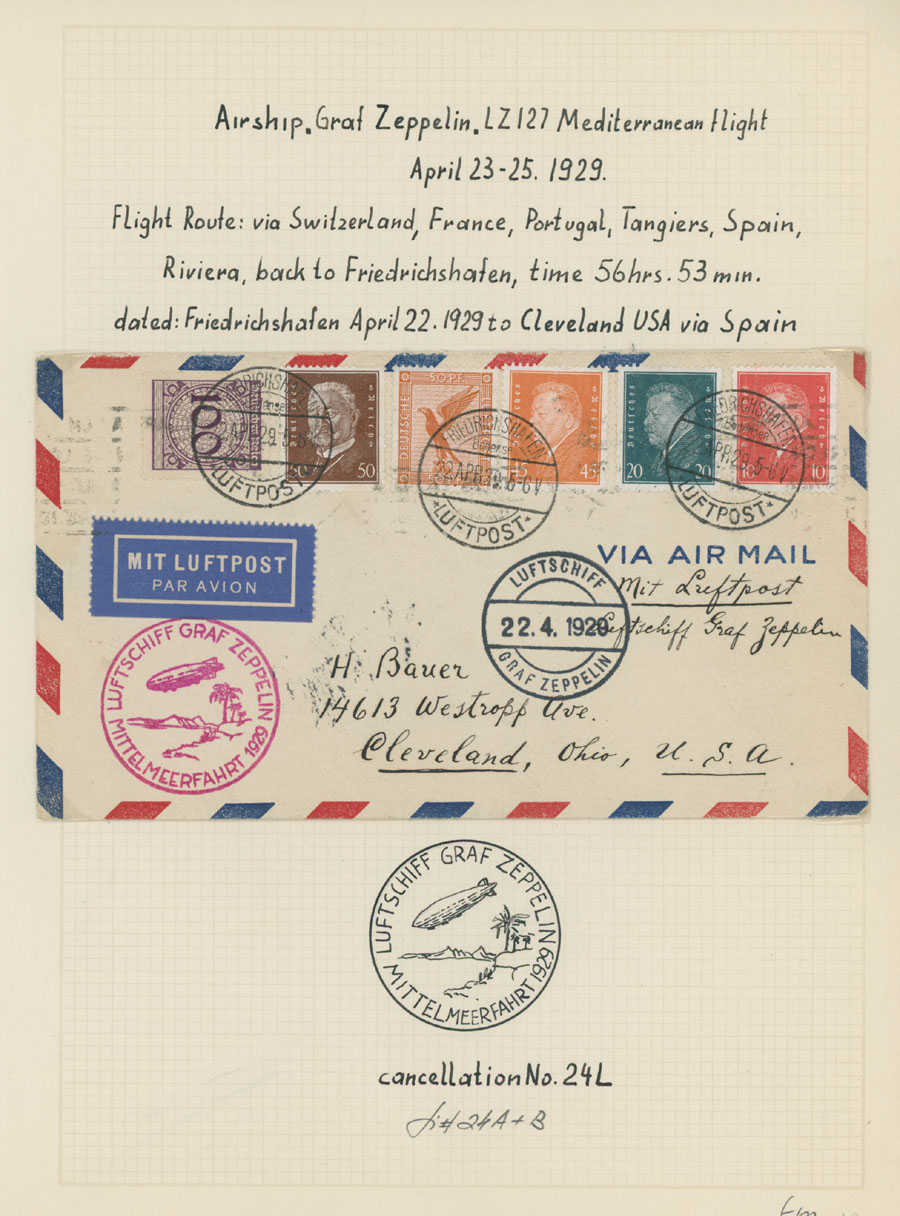 Airship. Graf Zeppelin. LZ127 Mediterranean flight
April 23-25. 1929.
Flight Route: via Switzerland, France, Portugal, Tangiers, Spain,
Riviera, back to Friedrichshafen, time 56hrs. 53 min.
dated: Friedrichshafen April 22. 1929 to Cleveland USA via Spain
100
50 50
50 PF.
DEUTSCHE
45 45
Deutsches Reich
20 20
Deutsches Reich
10 10
FRIEDRICHSHAFEN
(Bodensee)
22 APR 29. 5-6 V
*LUFTPOST*
FRIEDRICHSHAFEN
22 APR 29. 5-6 V
*LUFTPOST*
FRIEDRICHSHAFEN
APR 29. 5-6 V
LUFTPOST*
MIT LUFTPOST
PAR AVION
VIA AIR MAIL
Mit Luftpost
Luftschiff Graf Zeppelin
LUFTSCHIFF
22.4.1929
GRAF ZEPPELIN
LUFTSCHIFF GRAF ZEPPELIN
MITTELMEERFAHRT 1929
H. Bauer
14613 Westropp Ave.
Cleveland, Ohio, U. S. A.
LUFTSCHIFF GRAF ZEPPELIN
MITTELMEERFAHRT 1929
cancellation No. 24L
24A+B